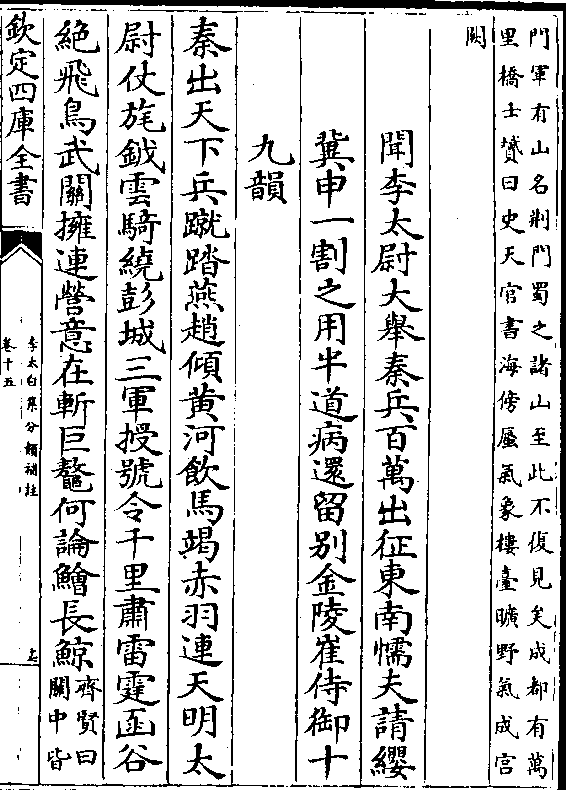 門軍有山名荆門蜀之諸山至此不復見矣成都有萬
里橋士贇曰史天官書海傍蜃氣象樓臺曠野氣成宫
闕
聞李太尉大舉秦兵百萬出征東南懦夫請纓
冀申一割之用半道病還留别金陵崔侍御十
九韻
秦出天下兵蹴踏燕趙傾黄河飲馬竭赤羽連天明太
尉仗旄鉞雲騎繞彭城三軍授號令千里肅雷霆函谷
絶飛鳥武關擁連營意在斬巨鼇何論鱠長鯨齊賢曰
關中皆
欽定四庫全書
李太白集分類補註
卷十五